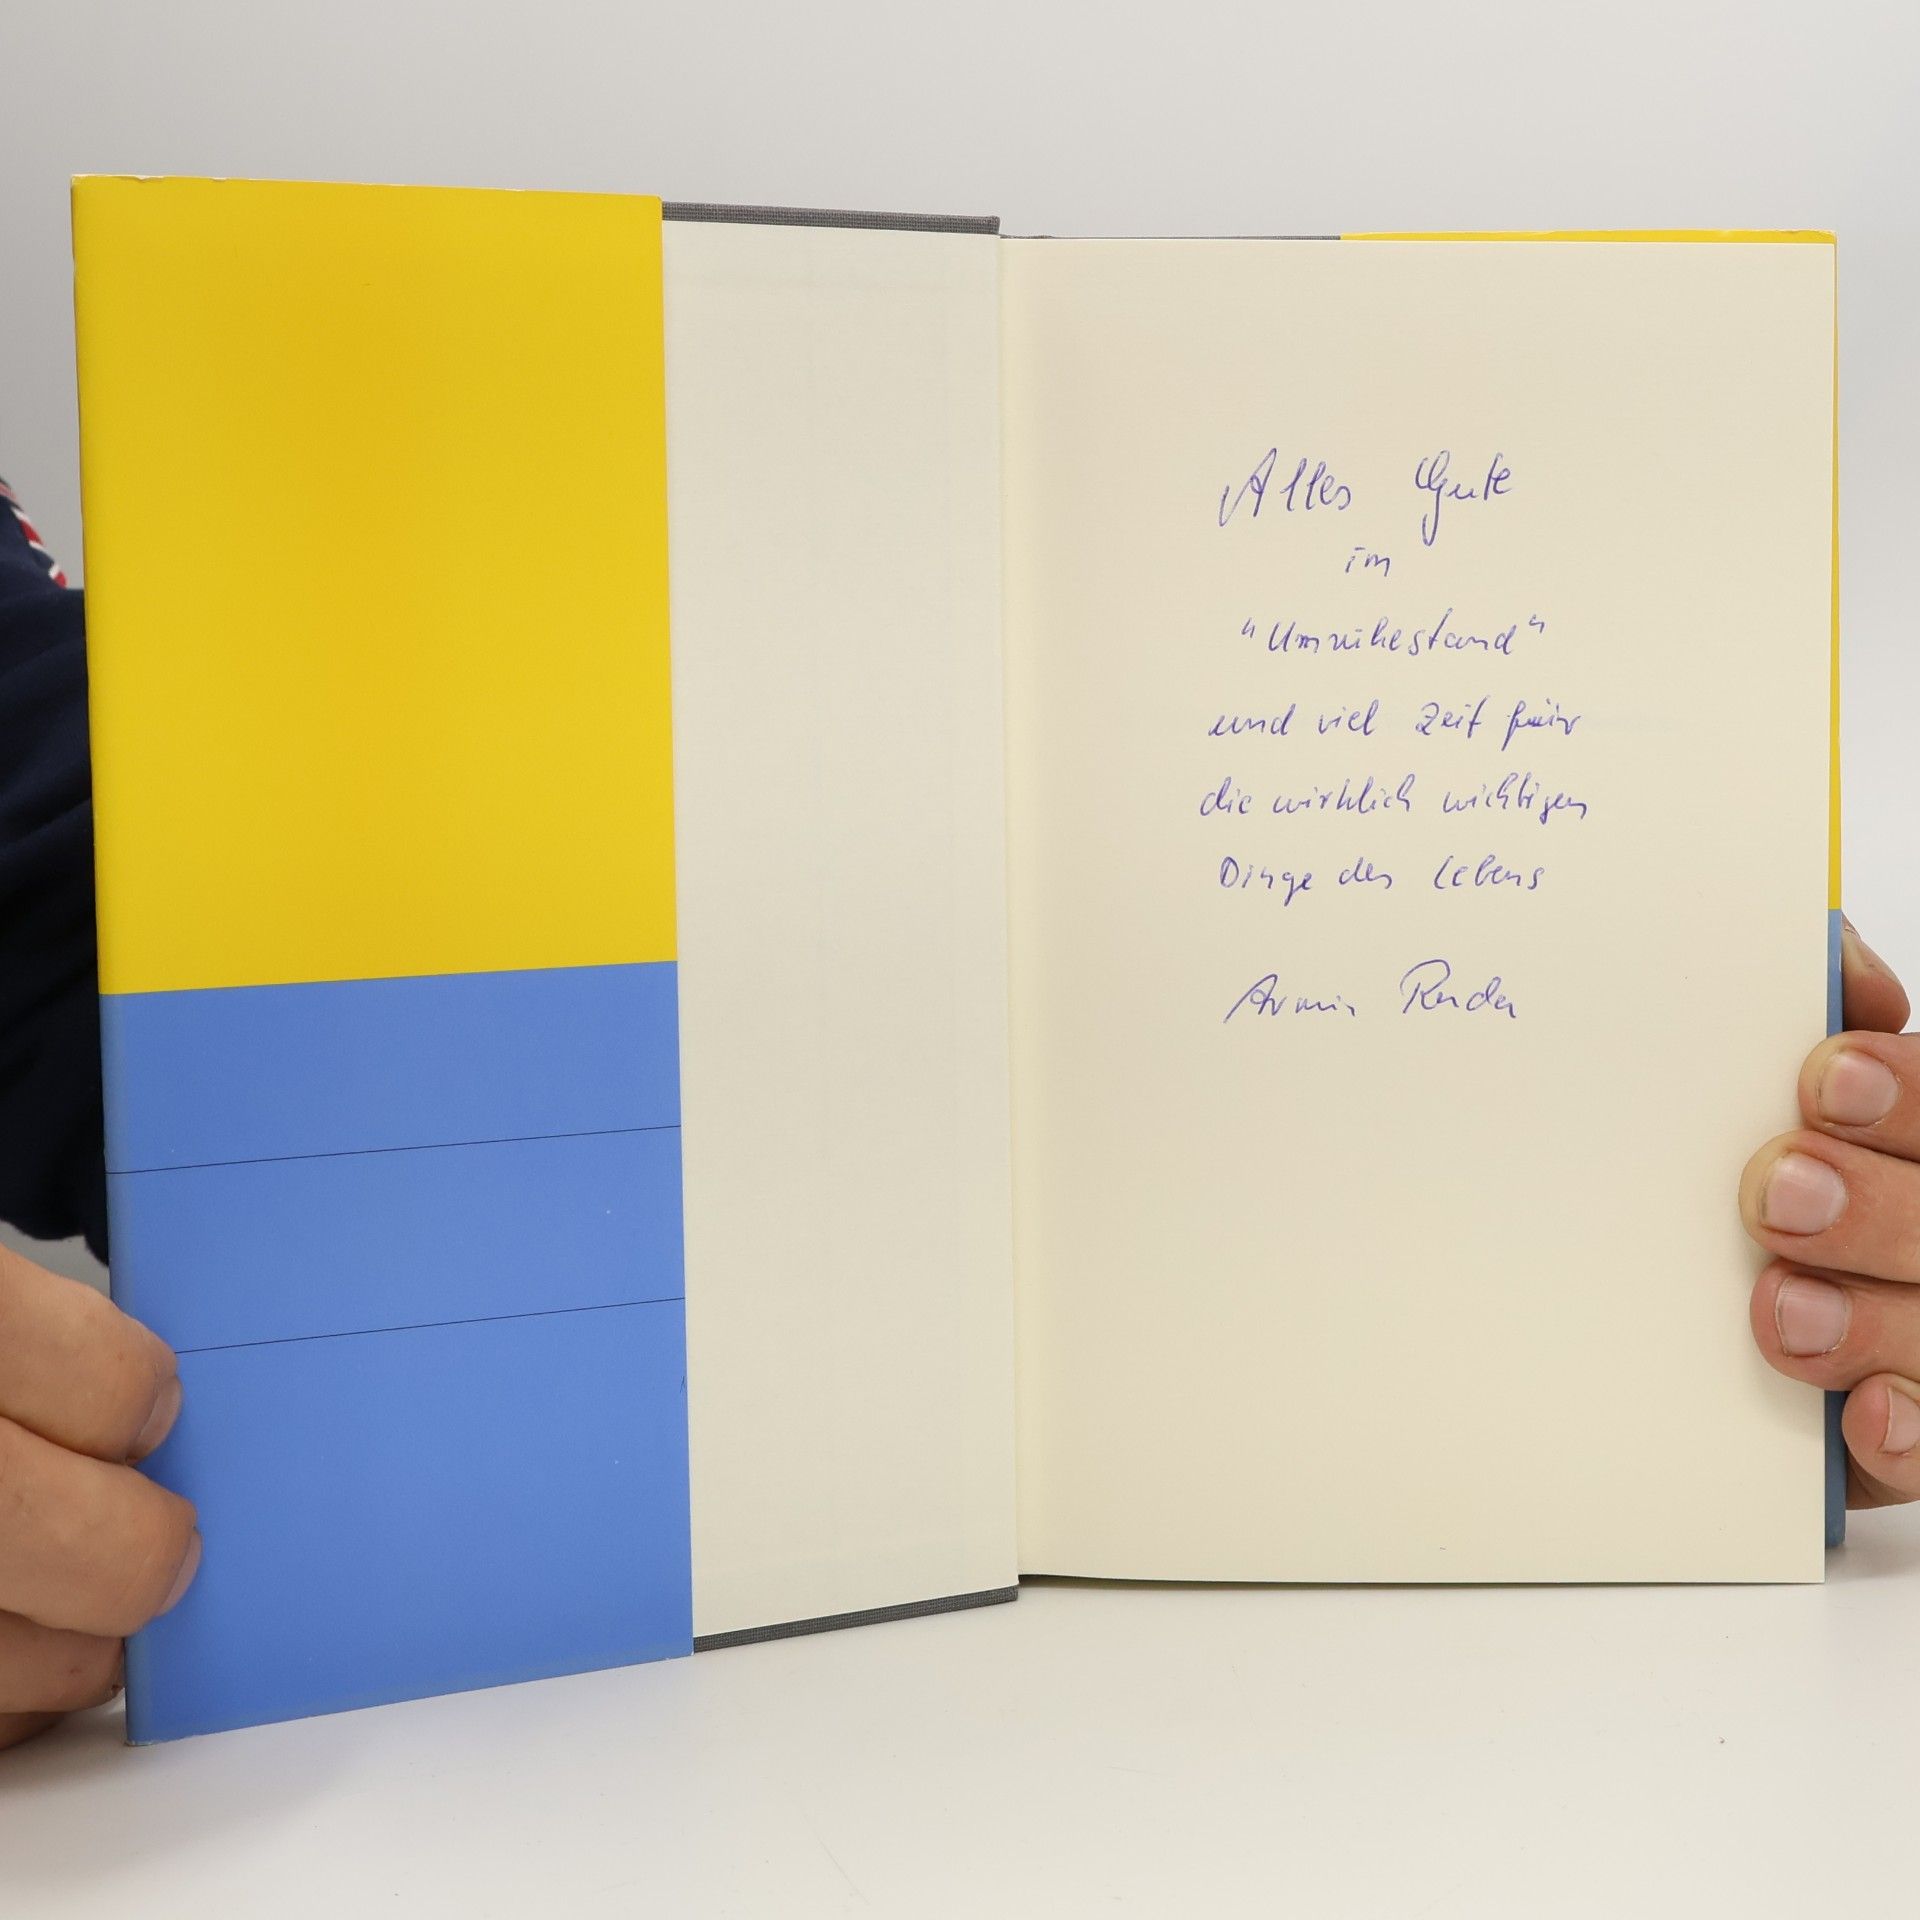 Alles Gute
im
"Unruhestand"
und viel Zeit für
die wirklich wichtigen
Dinge des Lebens
Armin